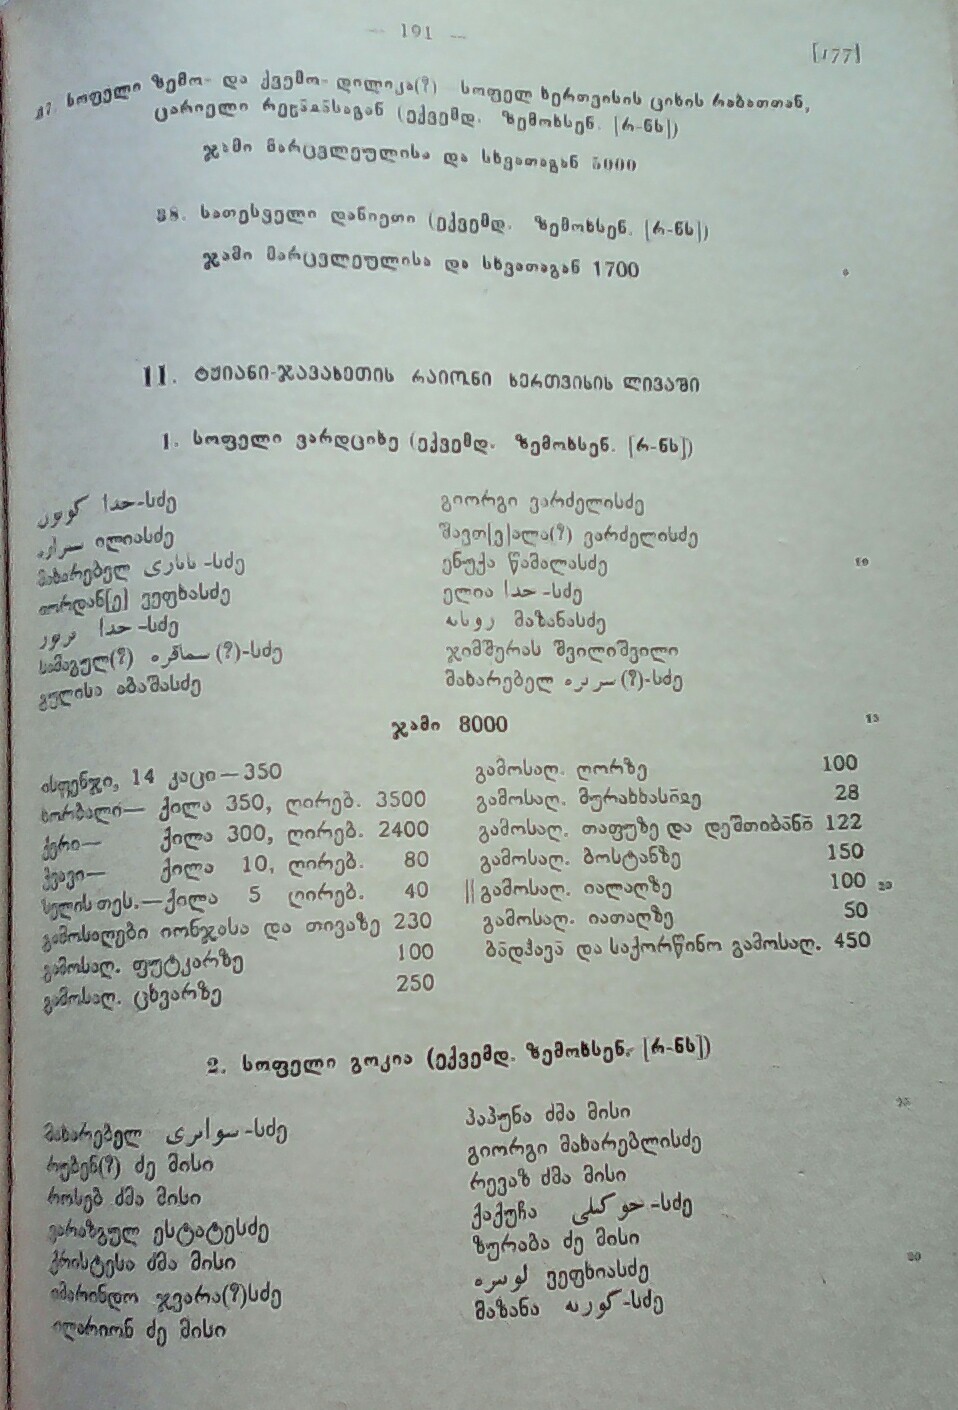 — 191 —
[177]
37. სოფელი ზემო- და ქვემო- დილიკა(?) სოფელ ხერთვისის ციხის რაბათთან,
ცარიელი (ექვემდ. ზემოხსენ. [რ-ნს])
ჯამი მარცვლეულისა და სხვათაგან 5000
38. სათესველი დანიეთი (ექვემდ. ზემოხსენ. [რ-ნს])
ჯამი მარცვლეულისა და სხვათაგან 1700
II. ტყიანი-ჯავახეთის რაიონი ხერთვისის ლივაში
1. სოფელი ვარდციხე (ექვემდ. ზემოხსენ. [რ-ნს])
حدا-სძე
ილიასძე
მახარებელ -სძე
იორდან[ე] ვეფხასძე
حدا-სძე
სამაგულ(?) سماقره(?)-სძე
გულისა აბაშასძე
გიორგი ვარძელისძე
შავთ[ე]ალა(?) ვარძელისძე
ენუქა წამალასძე
ელია حدا-სძე
მაზანასძე
ჯიმშერას შვილიშვილი
მახარებელ (?)-სძე
10
ჯამი 8000
15
ისფენჯი, 14 კაცი — 350
ხორბალი— ქილა 350, ღირებ. 3500
ქერი— ქილა 300, ღირებ. 2400
ჭვავი— ქილა 10, ღირებ. 80
სელის თეს.—ქილა 5 ღირებ. 40
გამოსაღები იონჯასა და თივაზე 230
გამოსაღ. ფუტკარზე 100
გამოსაღ. ცხვარზე 250
გამოსაღ. ღორზე 100
გამოსაღ. 28
გამოსაღ. თაფუზე და დეშთიბა̄ნა̄ 122
გამოსაღ. ბოსტანზე 150
|| გამოსაღ. იალაღზე 100
20
გამოსაღ. იათაღზე 50
ბა̄დჰავა̄ და საქორწინო გამოსაღ. 450
2. სოფელი გოკია (ექვემდ. ზემოხსენ. [რ-ნს])
მახარებელ -სძე
რუბენ(?) ძე მისი
როსებ ძმა მისი
ვარაზგულ ესტატესძე
ქრისტესა ძმა მისი
იმარინდო ჯვარა(?)სძე
ილარიონ ძე მისი
პაპუნა ძმა მისი
25
გიორგი მახარებლისძე
რევაზ ძმა მისი
ქაქუჩა -სძე
ზურაბა ძე მისი
30
ვეფხიასძე
მაზანა -სძე